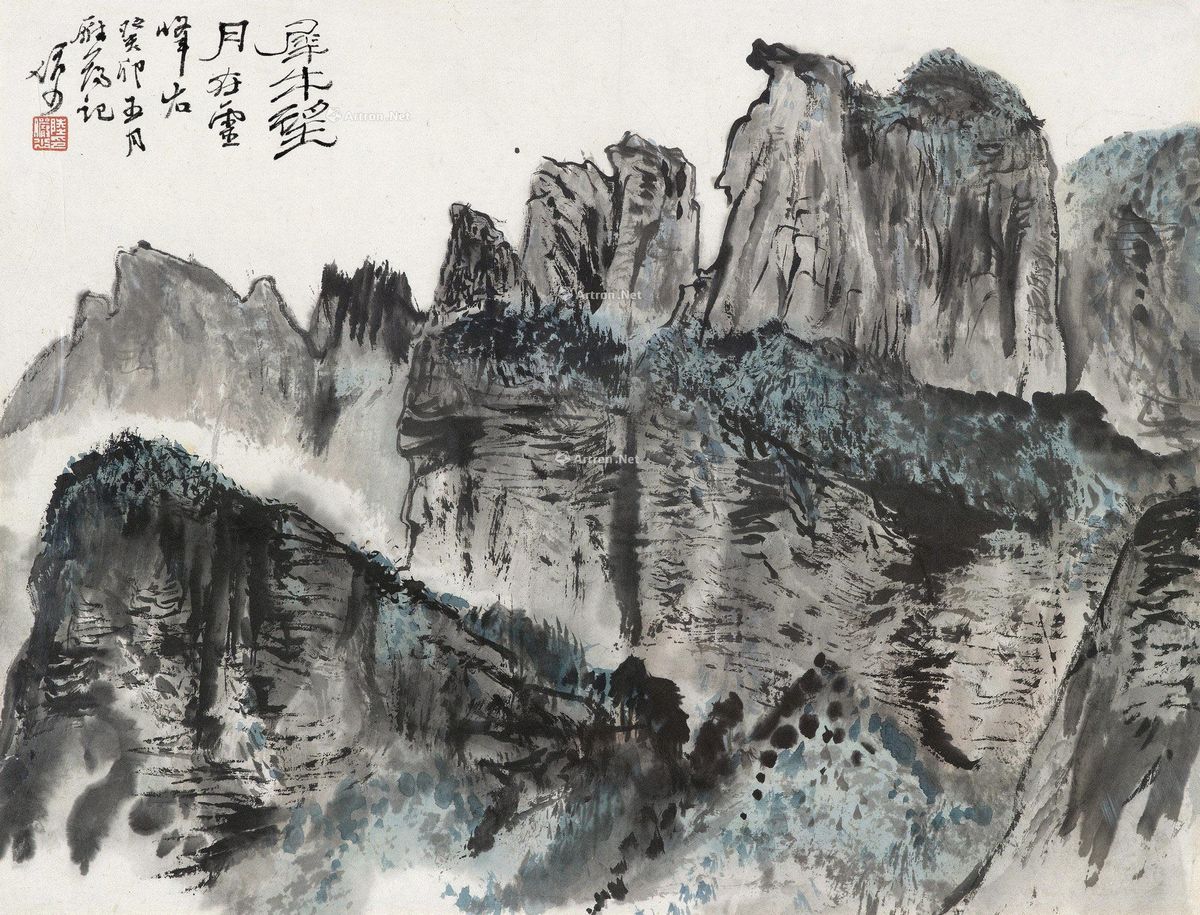 犀牛望
月在靈
峰右
癸卯五月
雁蕩記
儼少
Artron.Net
Artron.Net
Artron.Net